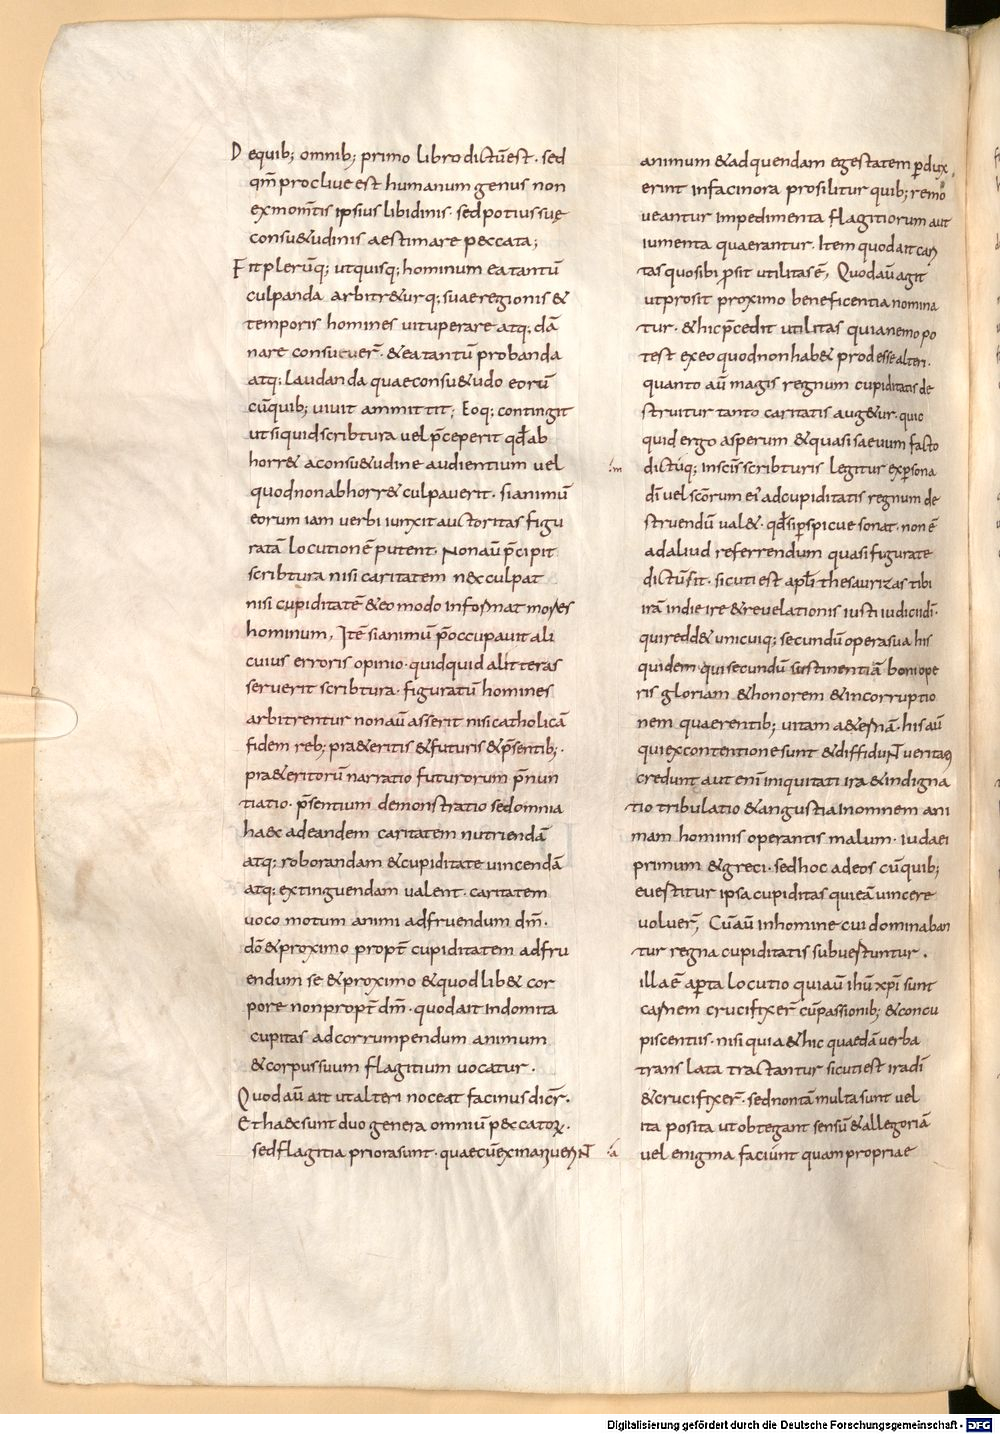 D equib; omnib; primo libro dictūest · sed
qm̄ procliue est humanum genus non
exmom̄tis ipsius libidinis · sed potius suę
consu&udinis aestimare peccata;
Fit plerūq; ut quisq; hominum ea tantū
culpanda arbitr&ur q; suae regionis &
temporis homines uituperare atq; dā
nare consueuer̄ · & ea tantū probanda
atq; laudanda quae consu&udo eorū
cū quib; uiuit ammittit; Eoq; contingit
ut si quid scribtura uel p̄ceperit qđ ab
horr& a consu&udine audientium uel
quod non abhorr& culpauerit · si animū
eorum iam uerbi iunxit auctoritas figu
ratā locutionē putent · Non aū p̄cipit
scribtura nisi caritatem nec culpat
nisi cupiditatē & eo modo informat mores
hominum, Itē si animū p̄occupauit ali
cuius erroris opinio · quidquid alit teras
seruerit scribtura · figuratū homines
arbitrentur non aū asserit nisi catholicā
fidem reb; pra&eritis & futuris & p̄sentib; ·
pra&eritorū narratio futurorum p̄nun
tiatio · p̄sentium demonstratio sed omnia
haec ad eandem caritatem nutriendā
atq; roborandam & cupiditate uincendā
atq; extinguendam ualent · caritatem
uoco motum animi ad fruendum dm̄ ·
dō & proximo propt̄ cupiditatem ad fru
endum se & proximo & quod lib& cor
pore non propt̄ dm̄ · quod ait indomita
cupitas ad corrumpendum animum
& corpus suum flagitium uocatur ·
Quod aū ait ut alteri noceat facinus dicr̄ ·
Et haec sunt duo genera omniū peccatorꝝ ·
sed flagitia priora sunt · quae cū exinanuerNT
animum & ad quendam egestatem ꝑdux
erint in facinora prosilitur quib; remo
ueantur impedimenta flagitiorum aut
iumenta quaerantur · Item quod ait cari
tas quo sibi ꝓsit utilitas ē, Quod aū agit
ut prosit proximo beneficentia nomina
tur · & hic p̄cedit utilitas quia nemo po
test ex eo quod non hab& prodesse alteri ·
quanto aū magis regnum cupiditatis de
struitur tanto caritatis aug&ur · quic
quid ergo asperum & quasi saeuum facto
:m dictūq; in scīs scribturis legitur ex ꝑsona
dī uel scōrum ei' ad cupiditatis regnum de
struendū ual& · qđ si ꝑspicue sonat · non ē
ad aliud referrendum quasi figurate
dictū sit · sicuti est apłi thesaurizas tibi
irā in die ire & reuelationis iusti iudicii dī ·
qui redd& unicuiq; secundū opera sua his
quidem · qui secundū sustinentiā boni ope
ris gloriam & honorem & incorruptio
nem quaerentib; uitam a&ernā · his aū
qui ex contentione sunt & diffiduNT ueritas
credunt aut enī iniquitati ira & indigna
tio tribulatio & angustia in omnem ani
mam hominis operantis malum · iudaei
primum & greci · sed hoc ad eos cū quib;
euestitur ipsa cupiditas qui eā uincere
uoluer̄, Cū aū in homine cui dominaban
tur regna cupiditatis subuestuntur ·
illa ē aꝑta locutio qui aū ihū xpī sunt
carnem crucifixer̄ cū passionib; & concu
piscentiis · nisi quia & hic quaedā uerba
translata tractantur sicuti est ira dī
& crucifixer̄ · sed non tā multa sunt uel
ita posita ut obtegant sensū & allegoriā
:a uel enigma faciunt quam propriae
Digitalisierung gefördert durch die Deutsche Forschungsgemeinschaft - DFG